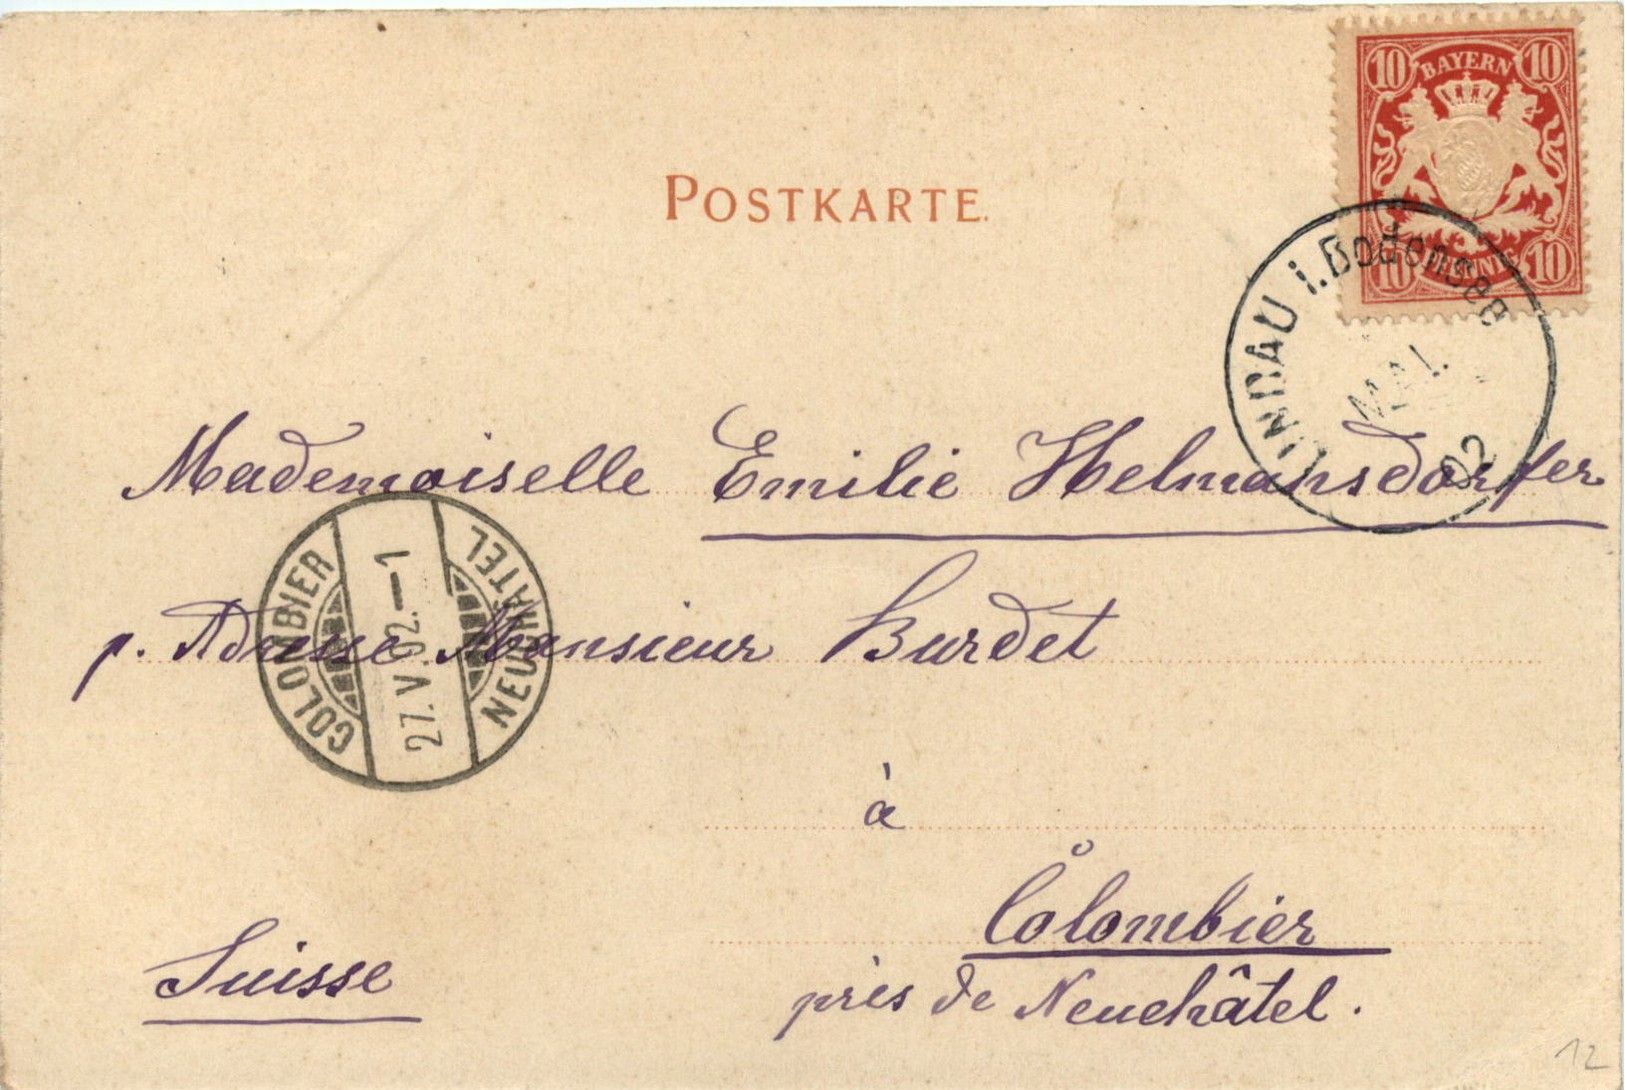 10 BAYERN 10
10 PFENNIG 10
POSTKARTE.
LINDAU i. Bodensee
MAI.
02
Mademoiselle Emilie Helmansdorfer
p. Adresse Monsieur Burdet
COLOMBIER
27. V. 02.–1
NEUCHÂTEL
à
Colombier
près de Neuchâtel.
Suisse
12